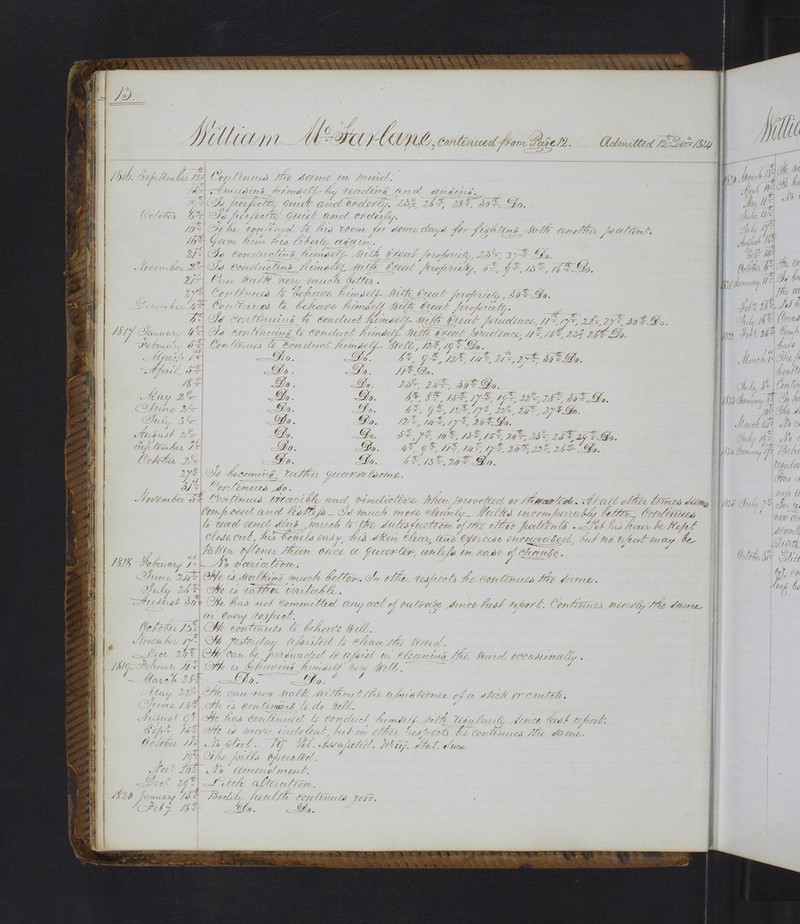 13
William McFarlane, continued from Page 12. Admitted 12th Decr 1814
1816. September 12th Continues the same in mind.
15th Amusing himself by reading and singing.
19th Is perfectly quiet and orderly. 23d, 26th, 28th, 30th Do.
October 6th Is perfectly quiet and orderly.
10th To be confined to his room for some days for fighting with another patient.
16th Gave him his liberty again.
21st Is conducting himself with great propriety, 25th, 27th Do.
November 2d Is conducting himself with great propriety, 5th, 9th, 15th, 16th Do.
21st Can walk very much better.
27th Continues to behave himself with great propriety, 30th Do.
December 4th Continues to behave himself with great propriety.
6th Is continuing to conduct himself with great prudence, 11th, 17th, 22d, 27th, 30th Do.
1817 January 4th Is continuing to conduct himself with great prudence, 11th, 15th, 22d, 26th Do.
February 5th Continues to conduct himself well, 12th, 19th Do.
March 1st Do. Do. 6th, 9th, 12th, 14th, 21st, 27th, 30th Do.
April 5th Do. Do. 11th Do.
18th Do. Do. 23d, 25th, 30th Do.
May 2d Do. Do. 6th, 8th, 15th, 17th, 19th, 22d, 28th, 30th Do.
June 2d Do. Do. 6th, 9th, 12th, 17th, 22d, 24th, 27th Do.
July 3d Do. Do. 12th, 14th, 17th, 26th Do.
August 2d Do. Do. 5th, 7th, 10th, 13th, 15th, 20th, 23d, 25th, 29th Do.
September 1st Do. Do. 4th, 9th, 11th, 14th, 17th, 20th, 22d, 26th Do.
October 2d Do. Do. 6th, 13th, 20th Do.
27th Is becoming rather quarrelsome.
31st Continues so.
November 5th Continues irascible and vindictive when provoked or thwarted. At all other times seems
composed and listless. Is much more cleanly. Walks incomparably better. Continues
to read and sing, much to the satisfaction of the other patients. Let his hair be kept
close cut, his bowels easy, his skin clear, and exercise encouraged, but no report may be
taken oftener than once a quarter, unless in case of change.
1818 February 1st No variation.
June 24th He is walking much better. In other respects he continues the same.
July 26th He is rather irritable.
August 30th He has not committed any act of outrage since last report. Continues nearly the same
in every respect.
October 13th He continues to behave well.
November 17th He yesterday assisted to clean the ward.
Decr 20th He can be persuaded to assist in cleaning the ward occasionally.
1819 February 4th He is behaving himself very well.
March 28th Do. Do.
May 22d He can now walk without the assistance of a stick or crutch.
June 18th He is continuing to do well.
August 9th He has continued to conduct himself with regularity since last report.
Sept 14th He is more indolent, but in other respects he continues the same.
October 11th No stool. Rx Pil. Assafœtid. No iij. Stat. Sum
19th The pills operated.
Nov 20th No amendment.
Decr 29th Little alteration.
1820 January 15th Bodily health continues good.
Feby 18th Do. Do.